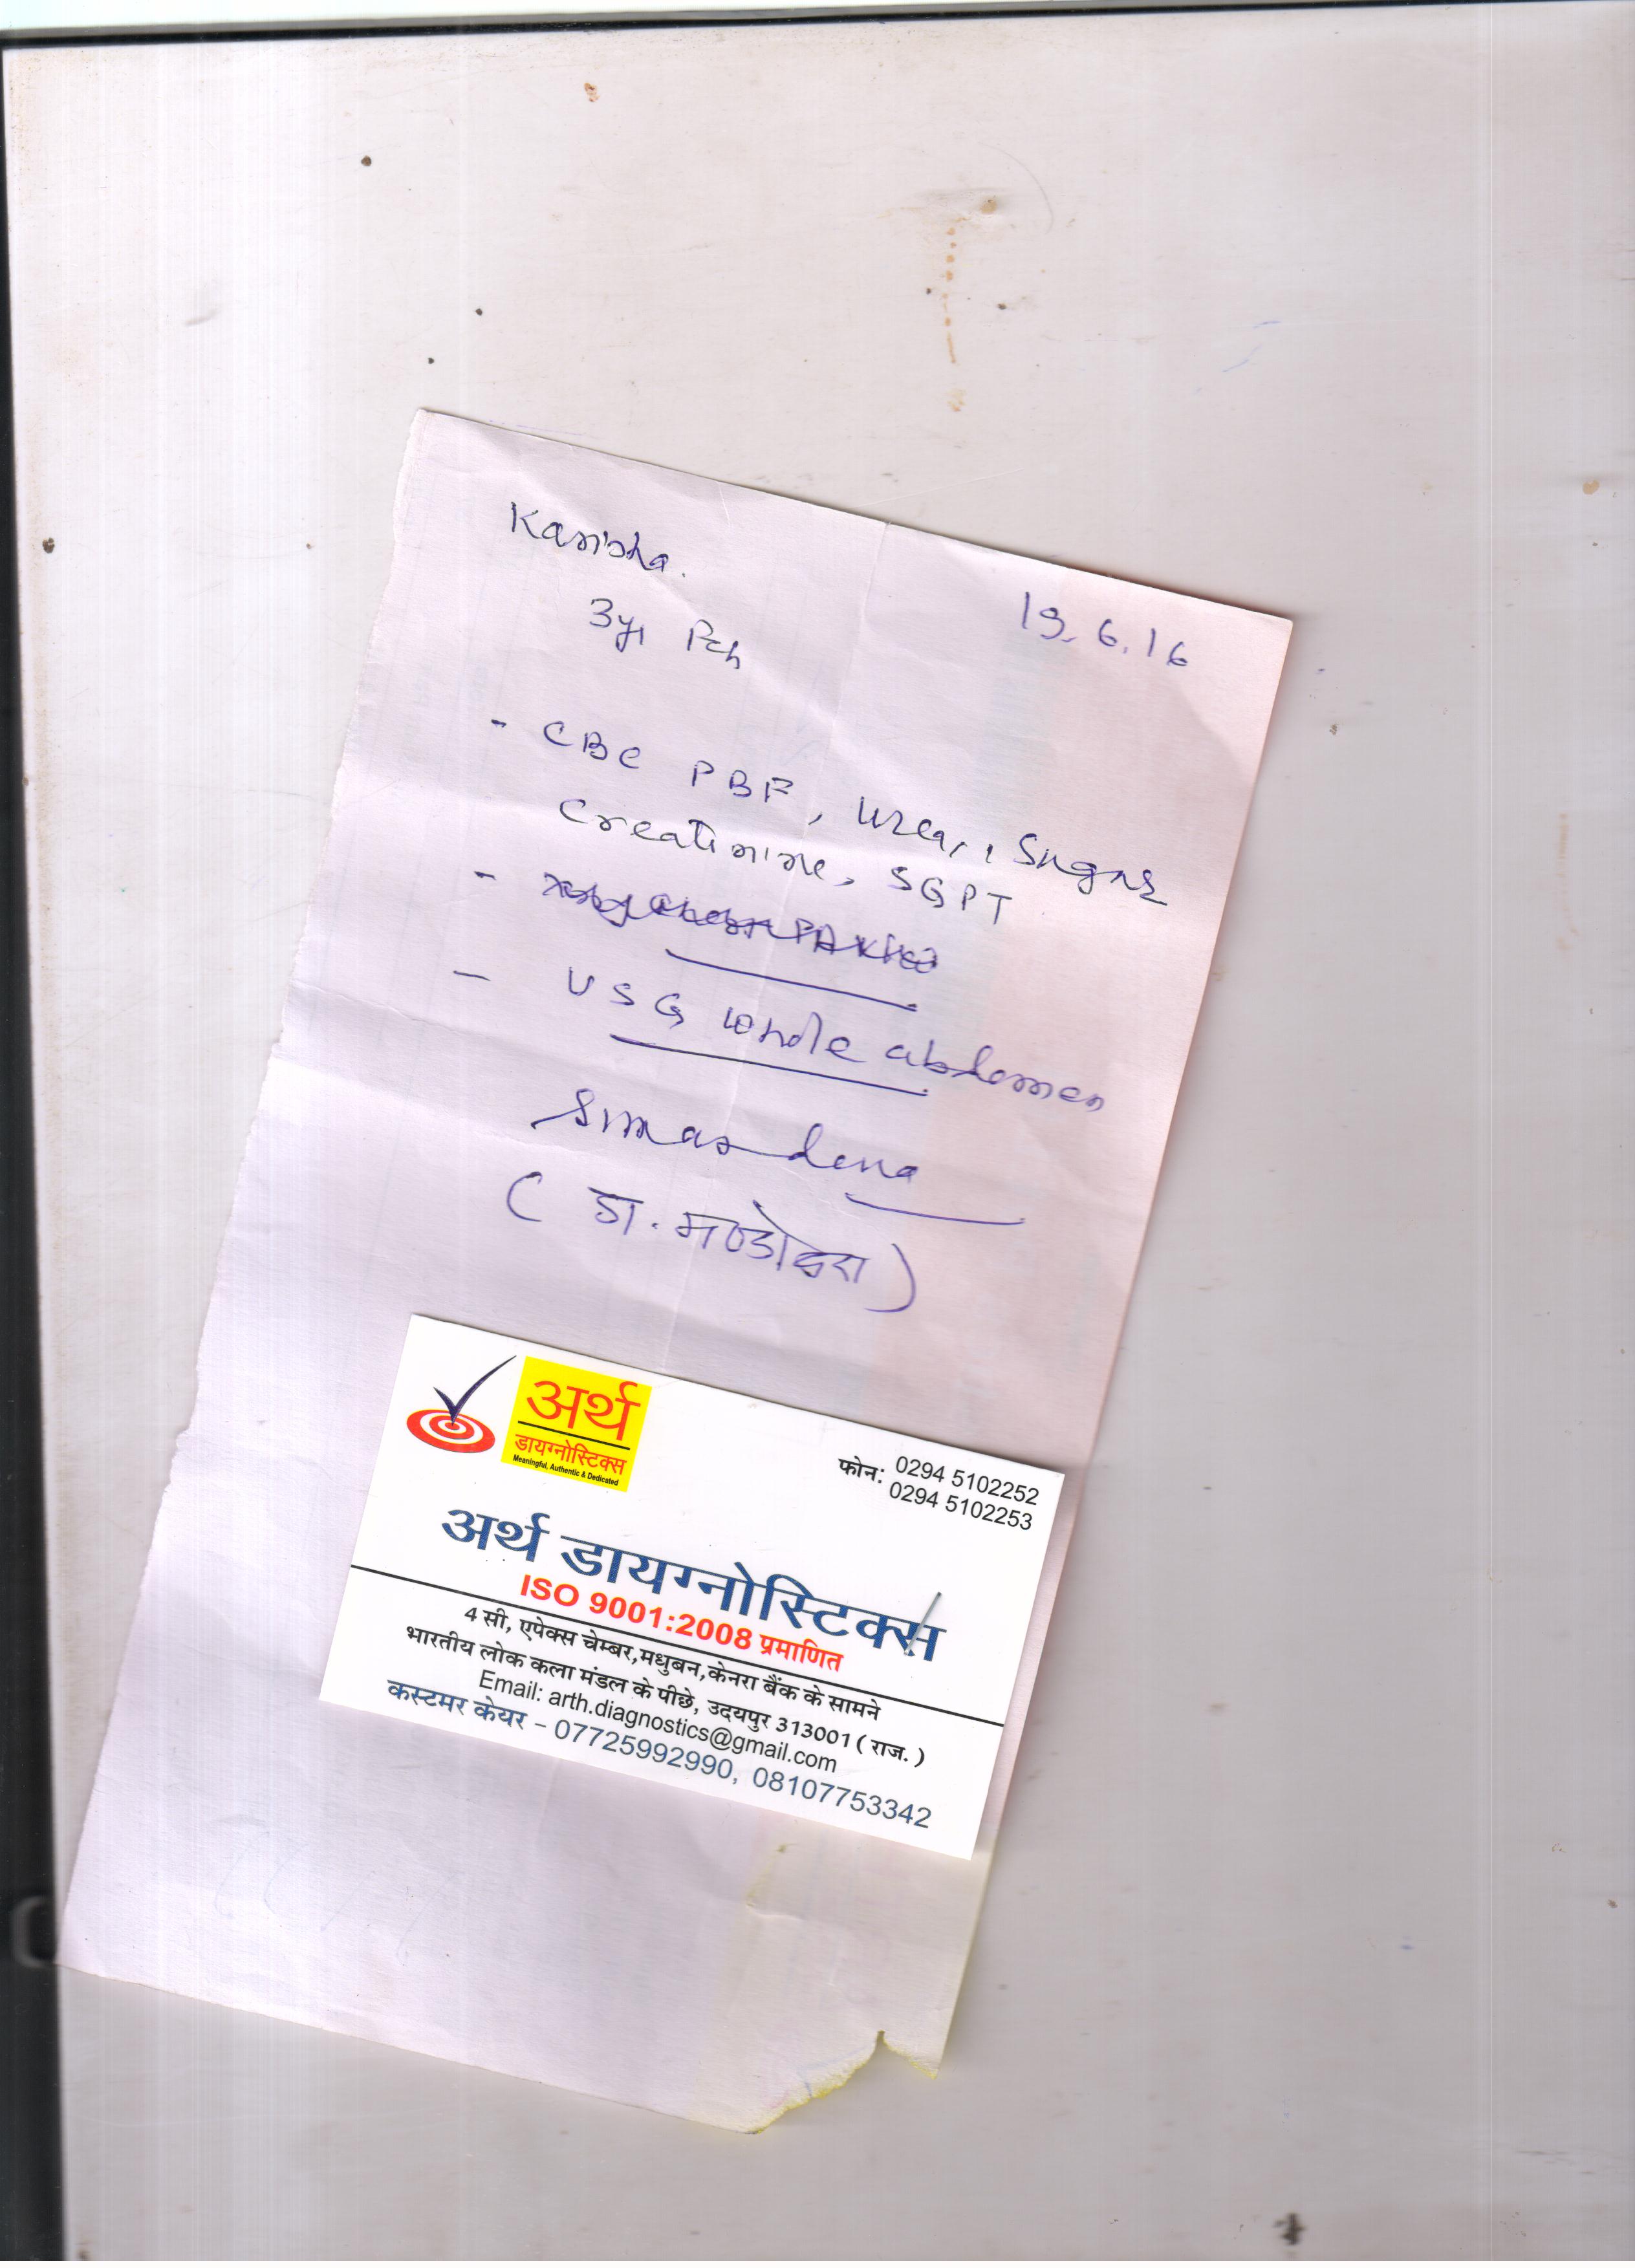 Kanisha.
19.6.16
3y, Fch
- CBC PBF, Urea, , Sugar
Creatinine, SGPT
-
- USG whole abdomen
(डा. मण्डोवरा)
अर्थ
डायग्नोस्टिक्स
Meaningful, Authentic & Dedicated
फोन: 0294 5102252
0294 5102253
अर्थ डायग्नोस्टिक्स
ISO 9001:2008 प्रमाणित
4 सी, एपेक्स चेम्बर,मधुबन,केनरा बैंक के सामने
भारतीय लोक कला मंडल के पीछे, उदयपुर 313001 ( राज. )
Email: arth.diagnostics@gmail.com
कस्टमर केयर – 07725992990, 08107753342